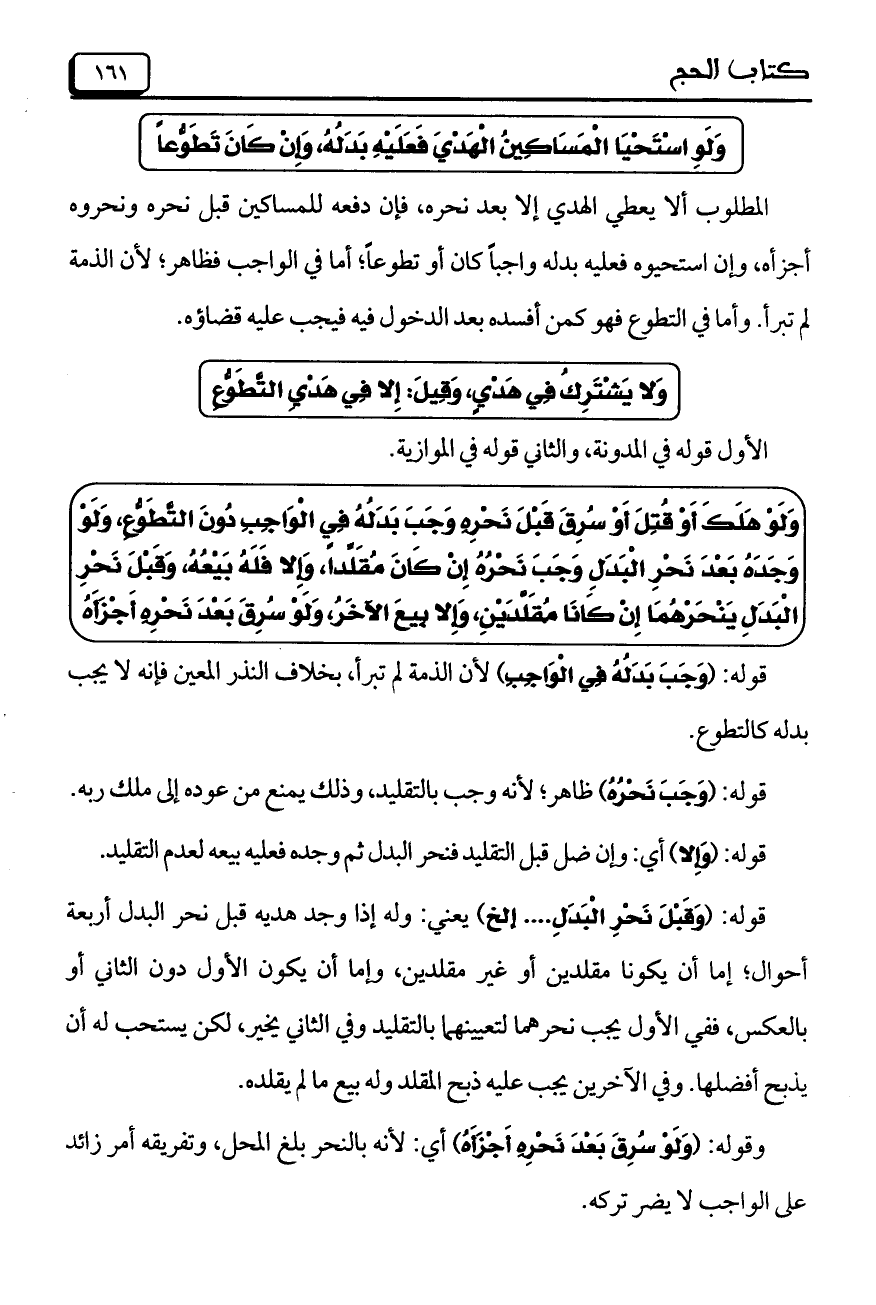 كتاب الحج ١٦١
وَلَوِ اسْتَحْيَا الْمَسَاكِينُ الْهَدْيَ فَعَلَيْهِ بَدَلُهُ، وَإِنْ كَانَ تَطَوُّعاً
المطلوب ألا يعطي الهدي إلا بعد نحره، فإن دفعه للمساكين قبل نحره ونحروه
أجزأه، وإن استحيوه فعليه بدله واجباً كان أو تطوعاً؛ أما في الواجب فظاهر؛ لأن الذمة
لم تبرأ. وأما في التطوع فهو كمن أفسده بعد الدخول فيه فيجب عليه قضاؤه.
وَلا يَشْتَرِكُ فِي هَدْيٍ، وَقِيلَ: إِلا فِي هَدْيِ التَّطَوُّعِ
الأول قوله في المدونة، والثاني قوله في الموازية.
وَلَوْ هَلَكَ أَوْ قُتِلَ أَوْ سُرِقَ قَبْلَ نَحْرِهِ وَجَبَ بَدَلُهُ فِي الْوَاجِبِ دُونَ التَّطَوُّعِ، وَلَوْ
وَجَدَهُ بَعْدَ نَحْرِ الْبَدَلِ وَجَبَ نَحْرُهُ إِنْ كَانَ مُقَلَّداً، وَإِلا فَلَهُ بَيْعُهُ، وَقَبْلَ نَحْرِ
الْبَدَلِ يَنْحَرْهُمَا إِنْ كَانَا مُقَلَّدَيْنِ، وَإِلا بِيعَ الآخَرُ، وَلَوْ سُرِقَ بَعْدَ نَحْرِهِ أَجْزَأَهُ
قوله: (وَجَبَ بَدَلُهُ فِي الْوَاجِبِ) لأن الذمة لم تبرأ، بخلاف النذر المعين فإنه لا يجب
بدله كالتطوع.
قوله: (وَجَبَ نَحْرُهُ) ظاهر؛ لأنه وجب بالتقليد، وذلك يمنع من عوده إلى ملك ربه.
قوله: (وَإِلا) أي: وإن ضل قبل التقليد فنحر البدل ثم وجده فعليه بيعه لعدم التقليد.
قوله: (وَقَبْلَ نَحْرِ الْبَدَلِ.... إلخ) يعني: وله إذا وجد هديه قبل نحر البدل أربعة
أحوال؛ إما أن يكونا مقلدين أو غير مقلدين، وإما أن يكون الأول دون الثاني أو
بالعكس، ففي الأول يجب نحرهما لتعيينهما بالتقليد وفي الثاني يخير، لكن يستحب له أن
يذبح أفضلها. وفي الآخرين يجب عليه ذبح المقلد وله بيع ما لم يقلده.
وقوله: (وَلَوْ سُرِقَ بَعْدَ نَحْرِهِ أَجْزَأَهُ) أي: لأنه بالنحر بلغ المحل، وتفريقه أمر زائد
على الواجب لا يضر تركه.